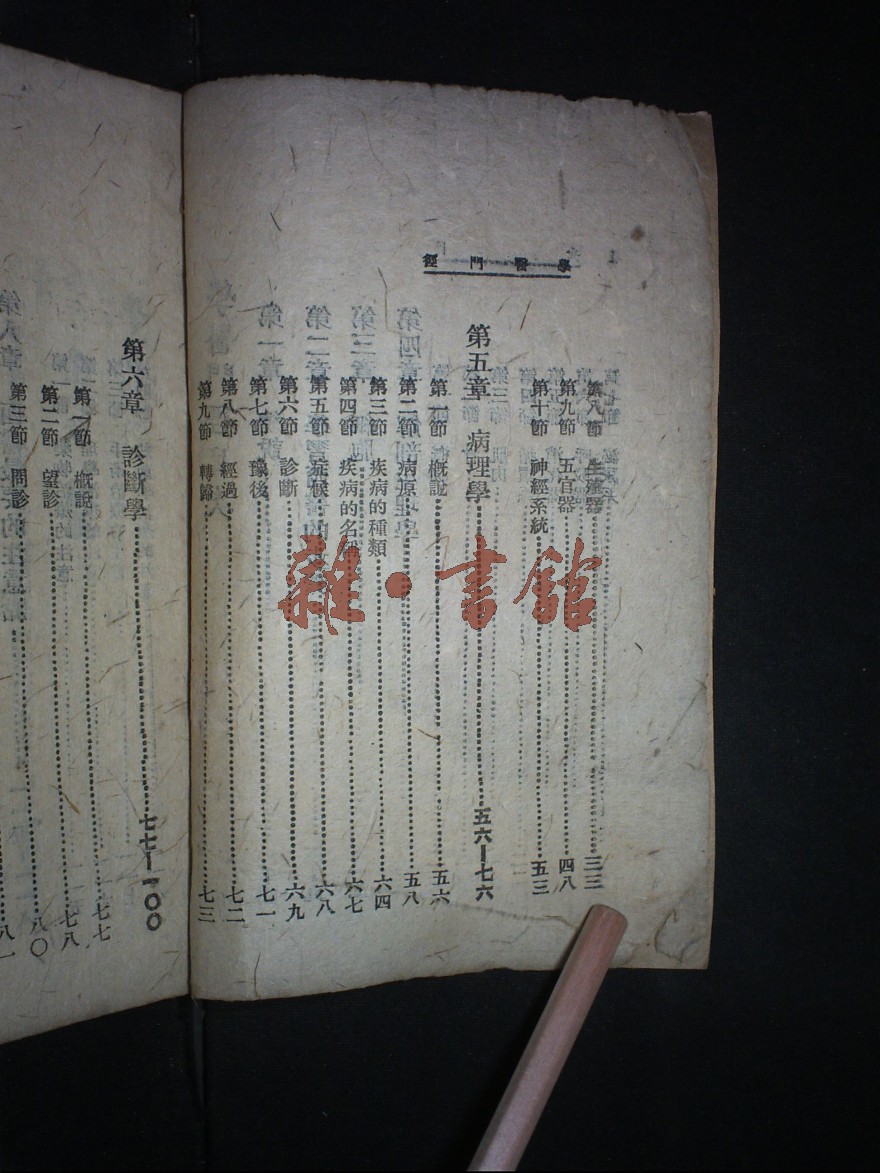 學醫門徑
第八節 生殖器 三三
第九節 五官器 四八
第十節 神經系統 五三
第五章 病理學 五六—七六
第一節 概說 五六
第二節 病原 五八
第三節 疾病的種類 六四
第四節 疾病的名稱 六七
第五節 症候 六八
第六節 診斷 六九
第七節 豫後 七一
第八節 經過 七二
第九節 轉歸 七三
第六章 診斷學 七七—一〇〇
第一節 概說 七七
第二節 望診 七八
第三節 問診 八〇
八一
雜·書館